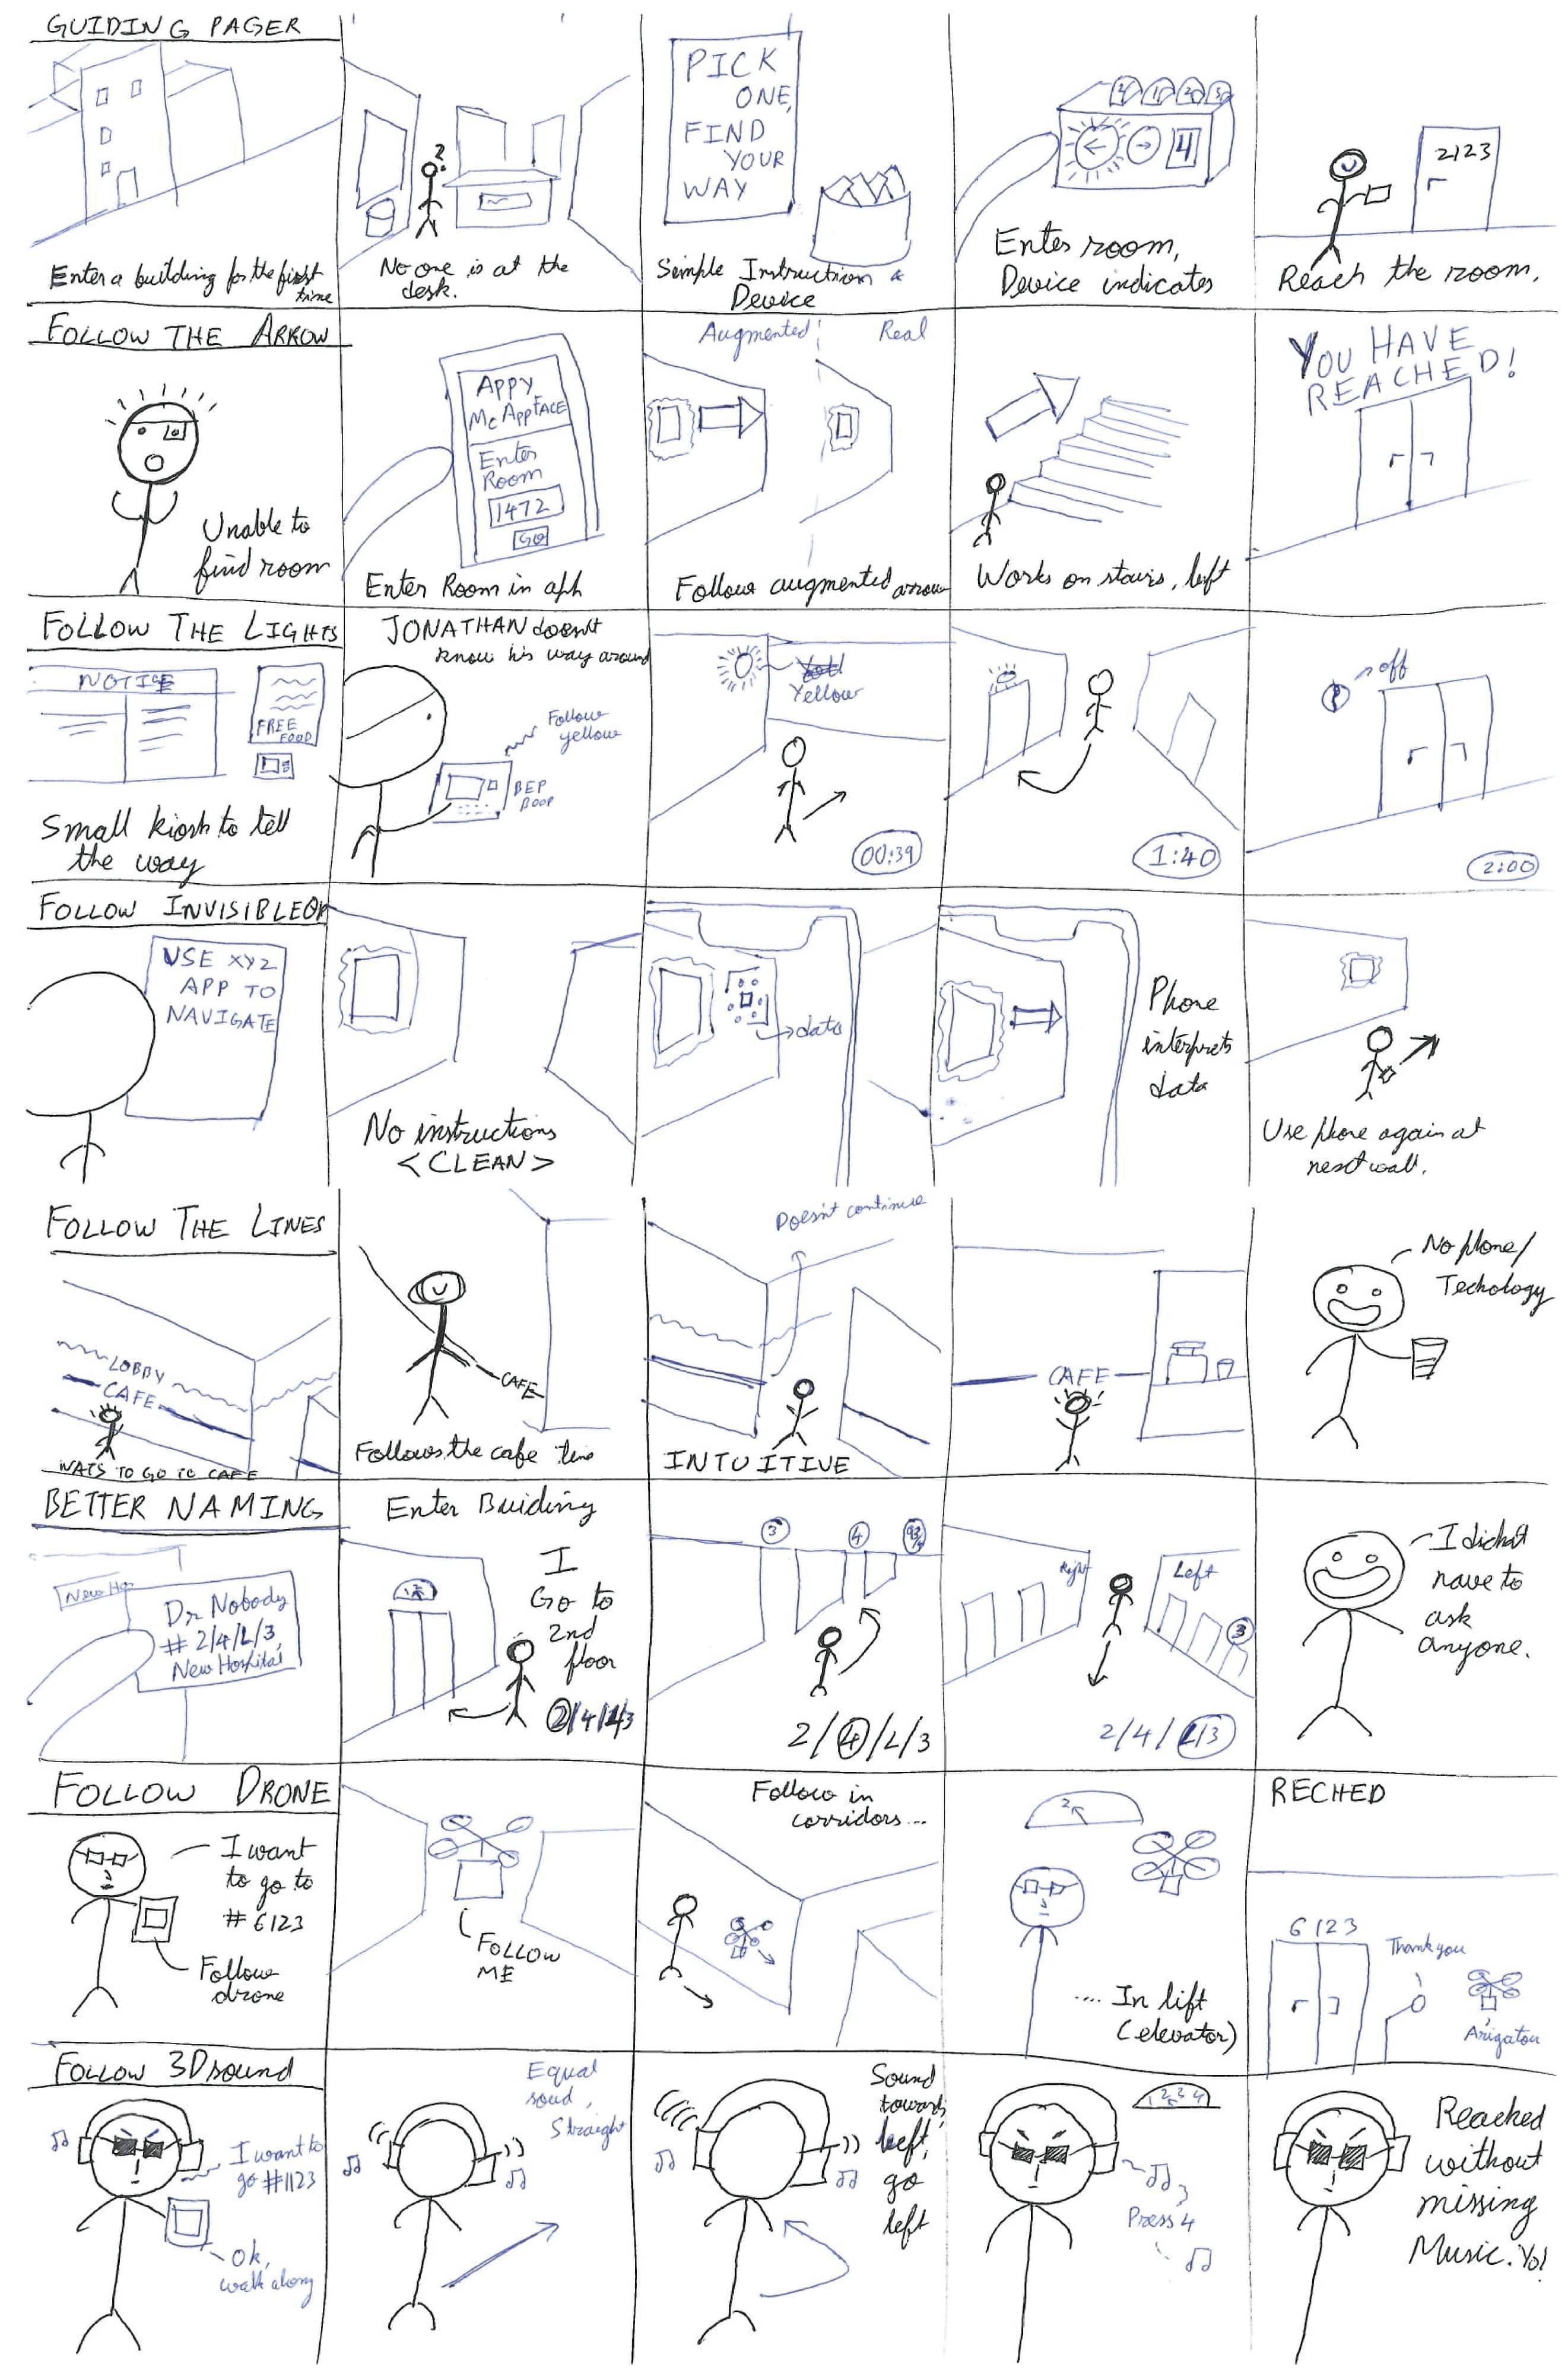 GUIDING PAGER
Enter a building for the first
time
?
No one is at the
desk.
PICK
ONE,
FIND
YOUR
WAY
Simple Instruction &
Device
4
Enter room,
Device indicates
2123
Reach the room.
FOLLOW THE ARROW
Unable to
find room
APPY
McAPPFACE
Enter
Room
1472
GO
Enter Room in app
Augmented
Real
Follow augmented arrow
Works on stairs, left
YOU HAVE
REACHED!
FOLLOW THE LIGHTS
NOTICE
FREE
FOOD
Small kiosk to tell
the way
JONATHAN doesn't
know his way around
Follow
yellow
BEP
BOOP
Yellow
00:39
1:40
off
2:00
FOLLOW INVISIBLE QR
USE XYZ
APP TO
NAVIGATE
No instructions
<CLEAN>
data
Phone
interprets
data
Use phone again at
next wall.
FOLLOW THE LINES
LOBBY
CAFE
WATS TO GO TO CAFE
CAFE
Follows the cafe line
Doesn't continue
INTUITIVE
CAFE
No phone/
Techology
BETTER NAMING
New Ho
Dr Nobody
# 2/4/L/3,
New Hospital
Enter Buiding
I
Go to
2nd
floor
2/4/L/3
3 4
2/4/L/3
Right
Left
3
2/4/L/3
I didnt
have to
ask
anyone.
FOLLOW DRONE
I want
to go to
# 6123
Follow
drone
FOLLOW
ME
Follow in
corridors...
2
.... In lift
(elevator)
RECHED
6123
Thank you
Arigatou
FOLLOW 3D sound
I want to
go #1123
Ok,
walk along
Equal
soud,
Straight
Sound
towards
left,
go
left
1 2 3 4
Press 4
Reached
without
missing
Music. Yo!